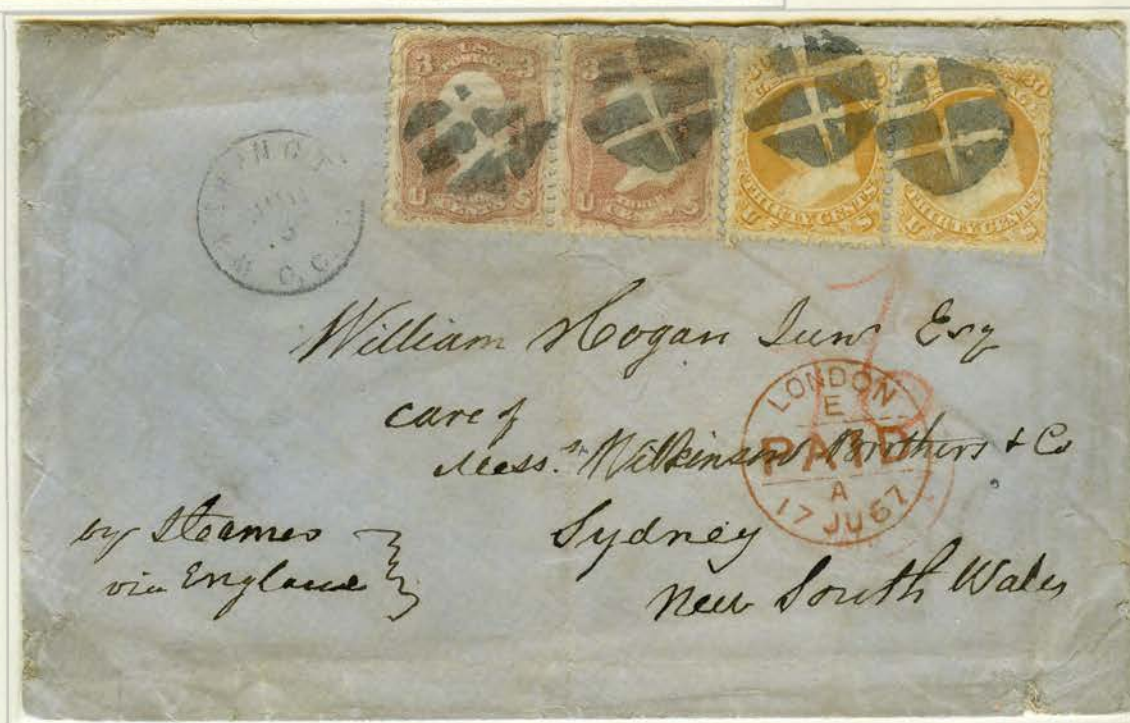 3 U.S. POSTAGE 3
U THREE CENTS S
3
U CENTS S
30
U THIRTY CENTS S
30
U THIRTY CENTS S
William Hogan Junr Esq
care of
Messrs. Wilkinson Brothers & Co
Sydney
New South Wales
by Steamer
via England
LONDON
E
PAID
A
17 JU 67